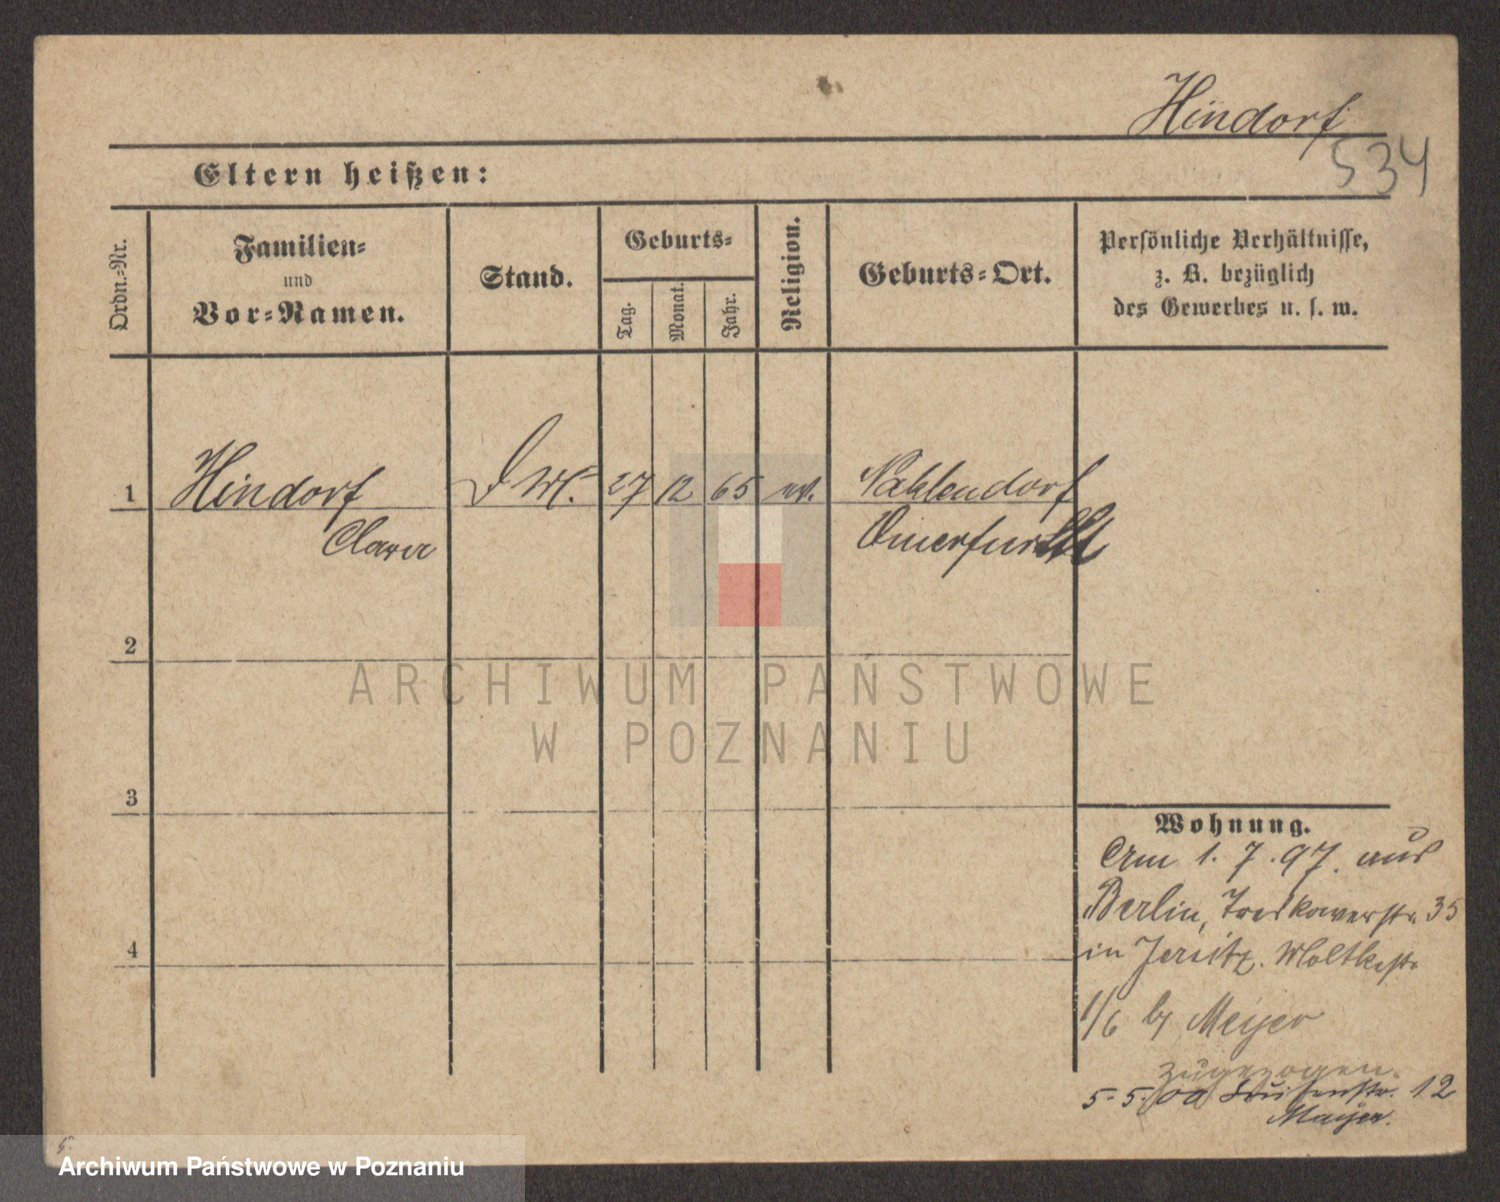 Hindorf
534
Eltern heißen:
Ordn.-Nr.
Familien-
und
Vor-Namen.
Stand.
Geburts-
Tag.
Monat.
Jahr.
Religion.
Geburts-Ort.
Persönliche Verhältnisse,
z. B. bezüglich
des Gewerbes u. s. w.
1 Hindorf 27 12 65 ev. Nahlendorf
Clara
2
3
4
Wohnung.
Am 1. 7. 97. aus
Berlin, Treskowerstr. 35
in Jersitz. Moltkestr.
1/6 by Meyer
zugezogen.
5. 5. 00 Luisenstr. 12
Mayer.
5.
ARCHIWUM PAŃSTWOWE
W POZNANIU
Archiwum Państwowe w Poznaniu